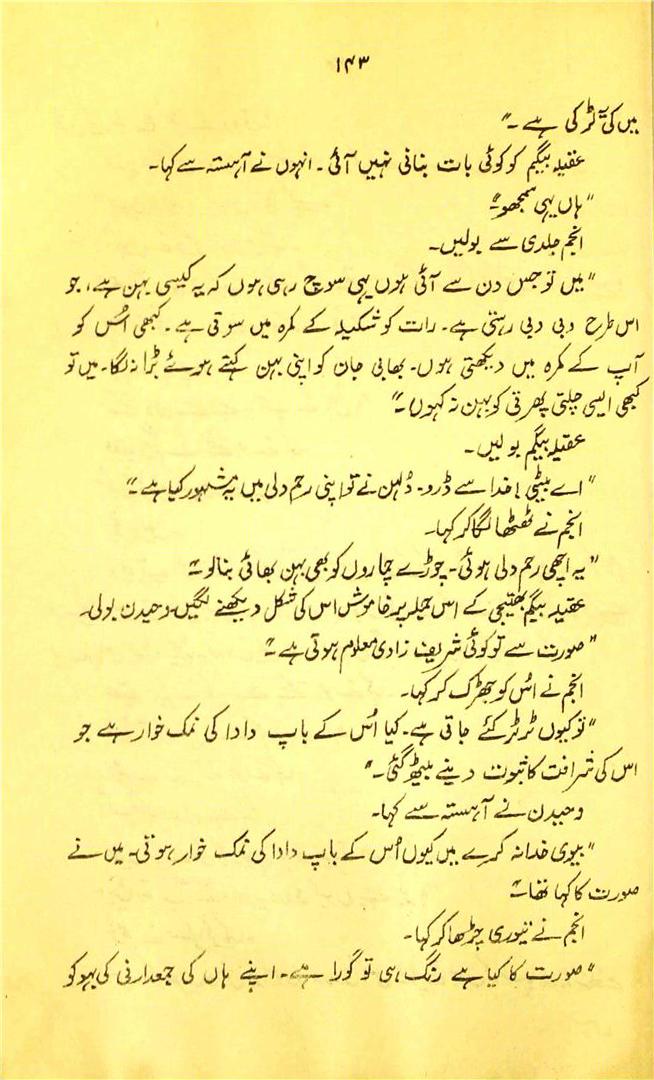 ۱۴۳
میں کی لڑکی ہے۔"
عقیلہ بیگم کو کوئی بات بنانی نہیں آئی۔ انہوں نے آہستہ سے کہا۔
"ہاں یہی سمجھو"
انجم جلدی سے بولیں۔
"میں تو جس دن سے آئی ہوں یہی سوچ رہی ہوں کہ یہ کیسی بہن ہے، جو
اس طرح دبی دبی رہتی ہے۔ رات کو شکیلہ کے کمرہ میں سوتی ہے۔ کبھی اُس کو
آپ کے کمرہ میں دیکھتی ہوں۔ بھابی جان کو اپنی بہن کہتے ہوئے بُرا نہ لگا۔ میں تو
کبھی ایسی چلتی پھرتی کو بہن نہ کہوں۔"
عقیلہ بیگم بولیں۔
"اے بیٹی! خدا سے ڈرو۔ دُلہن نے تو اپنی رحم دلی میں یہ مشہور کیا ہے۔"
انجم نے ٹھٹھا لگا کر کہا۔
"یہ اچھی رحم دلی ہوئی۔ چوڑے چماروں کو بھی بہن بھائی بنا لو۔"
عقیلہ بیگم بھتیجی کے اس جملہ پر خاموش اس کی شکل دیکھنے لگیں۔ وحیدن بولی۔
"صورت سے تو کوئی شریف زادی معلوم ہوتی ہے۔"
انجم نے اُس کو جھڑک کر کہا۔
"تو کیوں ٹرٹر کئے جاتی ہے۔ کیا اُس کے باپ دادا کی نمک خوار ہے جو
اس کی شرافت کا ثبوت دینے بیٹھ گئی۔"
وحیدن نے آہستہ سے کہا۔
"بیوی خدا نہ کرے میں کیوں اُس کے باپ دادا کی نمک خوار ہوتی۔ میں نے
صورت کا کہا تھا۔"
انجم نے تیوری چڑھا کر کہا۔
"صورت کا کیا ہے رنگ ہی تو گورا ہے۔ اپنے ہاں کی جمعدارنی کی بہو کو